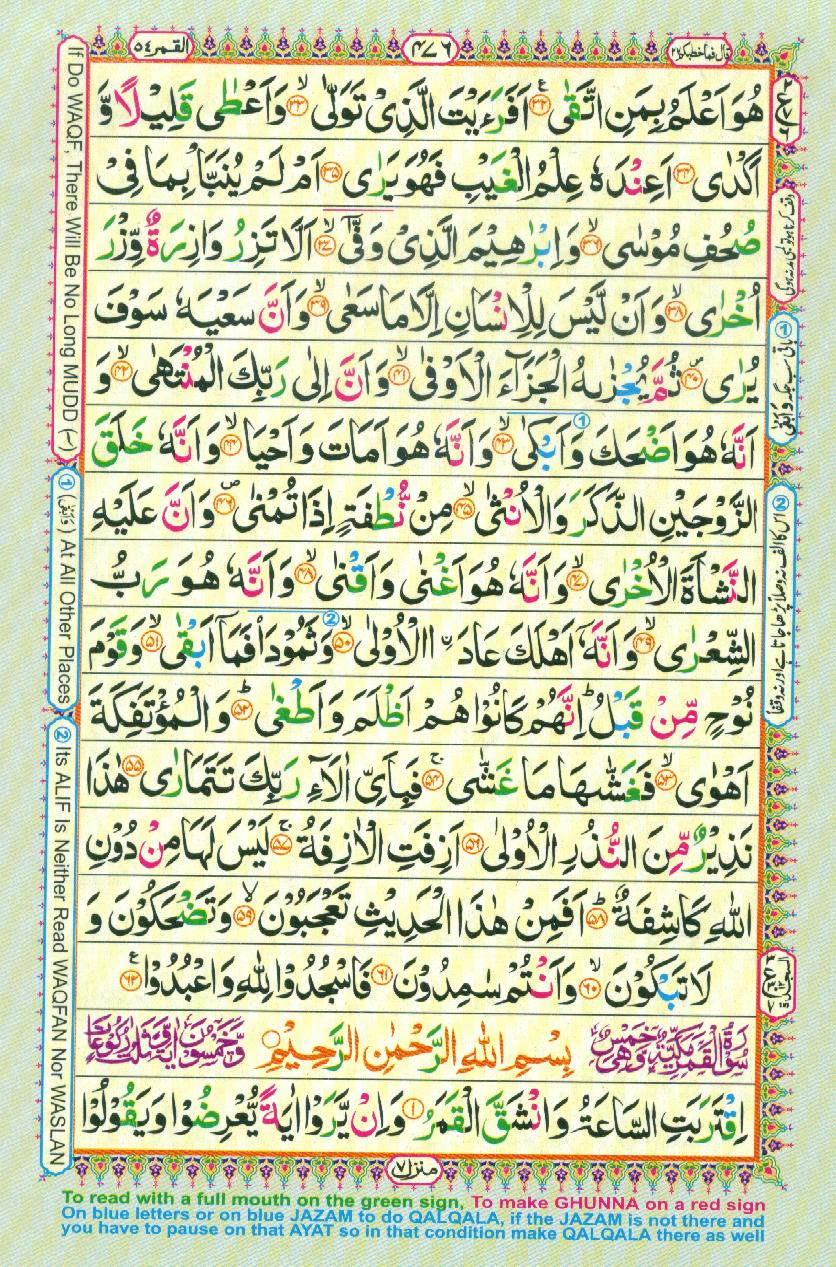 قال فما خطبكم ٢٧
٤٧٦
القمر ٥٤
هُوَ اَعْلَمُ بِمَنِ اتَّقٰى ﴿۳۲﴾ اَفَرَءَيْتَ الَّذِىْ تَوَلّٰى ﴿۳۳﴾ وَاَعْطٰى قَلِيْلًا وَّ
اَكْدٰى ﴿۳۴﴾ اَعِنْدَهٗ عِلْمُ الْغَيْبِ فَهُوَ يَرٰى ﴿۳۵﴾ اَمْ لَمْ يُنَبَّاْ بِمَا فِىْ
صُحُفِ مُوْسٰى ﴿۳۶﴾ وَاِبْرٰهِيْمَ الَّذِىْ وَفّٰٓى ﴿۳۷﴾ اَلَّا تَزِرُ وَازِرَةٌ وِّزْرَ
اُخْرٰى ﴿۳۸﴾ وَاَنْ لَّيْسَ لِلْاِنْسَانِ اِلَّا مَا سَعٰى ﴿۳۹﴾ وَاَنَّ سَعْيَهٗ سَوْفَ
يُرٰى ﴿۴۰﴾ ثُمَّ يُجْزٰىهُ الْجَزَآءَ الْاَوْفٰى ﴿۴۱﴾ وَاَنَّ اِلٰى رَبِّكَ الْمُنْتَهٰى ﴿۴۲﴾ وَ
اَنَّهٗ هُوَ اَضْحَكَ وَاَبْكٰى ﴿۴۳﴾ وَاَنَّهٗ هُوَ اَمَاتَ وَاَحْيَا ﴿۴۴﴾ وَاَنَّهٗ خَلَقَ
الزَّوْجَيْنِ الذَّكَرَ وَالْاُنْثٰى ﴿۴۵﴾ مِنْ نُّطْفَةٍ اِذَا تُمْنٰى ﴿۴۶﴾ وَاَنَّ عَلَيْهِ
النَّشْاَةَ الْاُخْرٰى ﴿۴۷﴾ وَاَنَّهٗ هُوَ اَغْنٰى وَاَقْنٰى ﴿۴۸﴾ وَاَنَّهٗ هُوَ رَبُّ
الشِّعْرٰى ﴿۴۹﴾ وَاَنَّهٗٓ اَهْلَكَ عَادَ ۨا الْاُوْلٰى ﴿۵۰﴾ وَثَمُوْدَا۟ فَمَآ اَبْقٰى ﴿۵۱﴾ وَقَوْمَ
نُوْحٍ مِّنْ قَبْلُ ؕ اِنَّهُمْ كَانُوْا هُمْ اَظْلَمَ وَاَطْغٰى ﴿۵۲﴾ وَالْمُؤْتَفِكَةَ
اَهْوٰى ﴿۵۳﴾ فَغَشّٰىهَا مَا غَشّٰى ﴿۵۴﴾ فَبِاَىِّ اٰلَآءِ رَبِّكَ تَتَمَارٰى ﴿۵۵﴾ هٰذَا
نَذِيْرٌ مِّنَ النُّذُرِ الْاُوْلٰى ﴿۵۶﴾ اَزِفَتِ الْاٰزِفَةُ ﴿۵۷﴾ لَيْسَ لَهَا مِنْ دُوْنِ
اللّٰهِ كَاشِفَةٌ ﴿۵۸﴾ اَفَمِنْ هٰذَا الْحَدِيْثِ تَعْجَبُوْنَ ﴿۵۹﴾ وَتَضْحَكُوْنَ وَ
لَا تَبْكُوْنَ ﴿۶۰﴾ وَاَنْتُمْ سٰمِدُوْنَ ﴿۶۱﴾ فَاسْجُدُوْا لِلّٰهِ وَاعْبُدُوْا ﴿۶۲﴾
سُوْرَةُ الْقَمَرِ مَكِّيَّةٌ وَّهِىَ خَمْسٌ
بِسْمِ اللّٰهِ الرَّحْمٰنِ الرَّحِيْمِ
وَّخَمْسُوْنَ اٰيَةً وَّثَلٰثُ رُكُوْعَاتٍ
اِقْتَرَبَتِ السَّاعَةُ وَانْشَقَّ الْقَمَرُ ﴿۱﴾ وَاِنْ يَّرَوْا اٰيَةً يُّعْرِضُوْا وَيَقُوْلُوْا
منزل ٧
If Do WAQF, There Will Be No Long MUDD (~)
① (وَاَبْقٰى) At All Other Places
② Its ALIF Is Neither Read WAQFAN Nor WASLAN
To read with a full mouth on the green sign, To make GHUNNA on a red sign
On blue letters or on blue JAZAM to do QALQALA, if the JAZAM is not there and
you have to pause on that AYAT so in that condition make QALQALA there as well